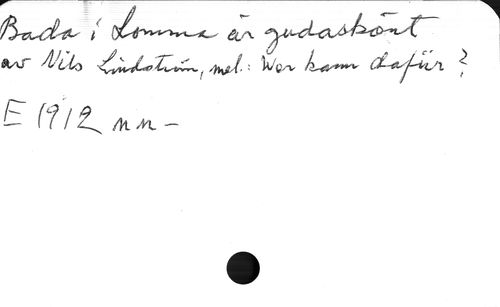 Bada i Lomma är gudaskönt
av Nils Lindström, mel.: Wer kann dafür?
E 1912 nn –